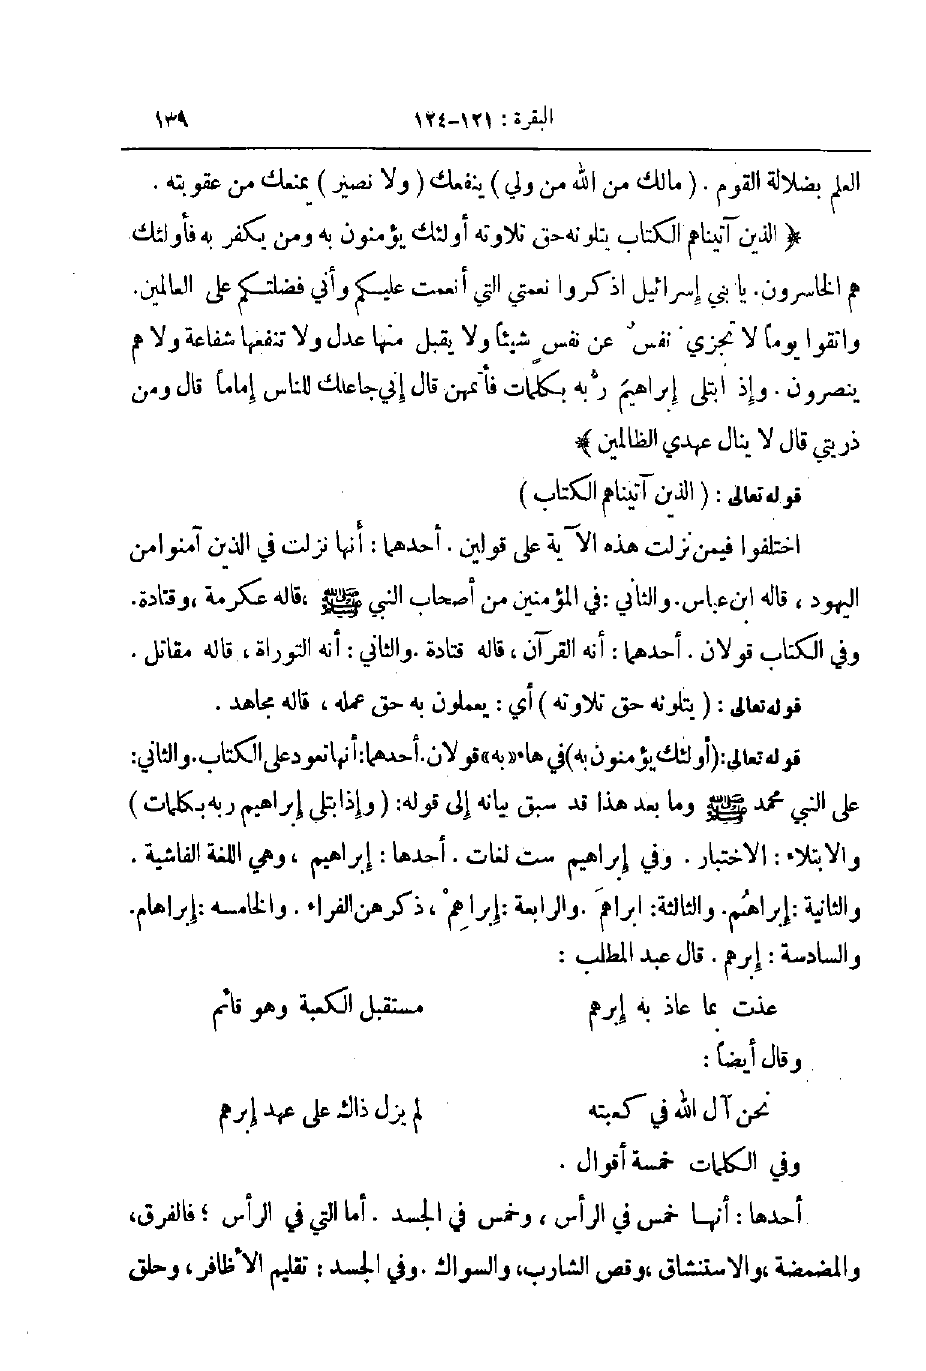 البقرة : ١٢١-١٢٤ ١٣٩
العلم بضلالة القوم . ( مالك من الله من ولي ) ينفعك ( ولا نصير ) يمنعك من عقوبته .
﴿ الذين آتيناهم الكتاب يتلونه حق تلاوته أولئك يؤمنون به ومن يكفر به فأولئك
هم الخاسرون. يا بني إسرائيل اذكروا نعمتي التي أنعمت عليكم وأني فضلتكم على العالمين.
واتقوا يوماً لا تجزي نفسٌ عن نفسٍ شيئاً ولا يقبل منها عدل ولا تنفعها شفاعة ولا هم
ينصرون . وإذ ابتلى إبراهيمَ ربُّه بكلمات فأتمهن قال إني جاعلك للناس إماماً قال ومن
ذريتي قال لا ينال عهدي الظالمين ﴾
قوله تعالى : ( الذين آتيناهم الكتاب )
اختلفوا فيمن نزلت هذه الآية على قولين . أحدهما : أنها نزلت في الذين آمنوا من
اليهود ، قاله ابن عباس. والثاني : في المؤمنين من أصحاب النبي ﷺ ، قاله عكرمة ، وقتادة.
وفي الكتاب قولان . أحدهما : أنه القرآن ، قاله قتادة . والثاني : أنه التوراة ، قاله مقاتل .
قوله تعالى : ( يتلونه حق تلاوته ) أي : يعملون به حق عمله ، قاله مجاهد .
قوله تعالى: (أولئك يؤمنون به) في هاء «به» قولان. أحدهما: أنها تعود على الكتاب. والثاني:
على النبي محمد ﷺ وما بعد هذا قد سبق بيانه إلى قوله: ( وإذ ابتلى إبراهيم ربه بكلمات )
والابتلاء : الاختبار . وفي إبراهيم ست لغات . أحدها : إبراهيم ، وهي اللغة الفاشية .
والثانية : إبراهُم. والثالثة: ابراهَم . والرابعة : إبراهِمْ ، ذكرهن الفراء . والخامسه : إبراهام.
والسادسة : إبرهم . قال عبد المطلب :
عذت بما عاذ به إبرهم مستقبل الكعبة وهو قائم
وقال أيضاً :
نحن آل الله في كعبته لم يزل ذاك على عهد إبرهم
وفي الكلمات خمسة أقوال .
أحدها : أنها خمس في الرأس ، وخمس في الجسد . أما التي في الرأس ؛ فالفرق،
والمضمضة ، والاستنشاق ، وقص الشارب، والسواك . وفي الجسد : تقليم الأظافر ، وحلق